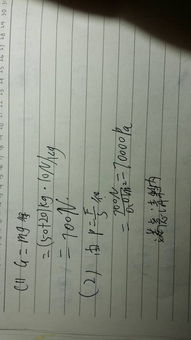 (1) G=mg得
=(50+20)kg·10N/kg
=700N
(2) 由P=F/S得
=700N/0.07m²=10000Pa